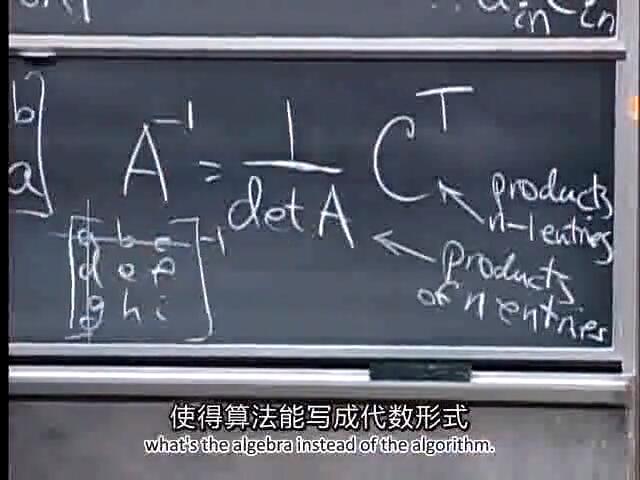 a_in C_in
b
a
A^{-1} = 1/det A C^T
products
n-1 entries
[a b c
d e f
g h i]^{-1}
products
of n entries
使得算法能写成代数形式
what's the algebra instead of the algorithm.